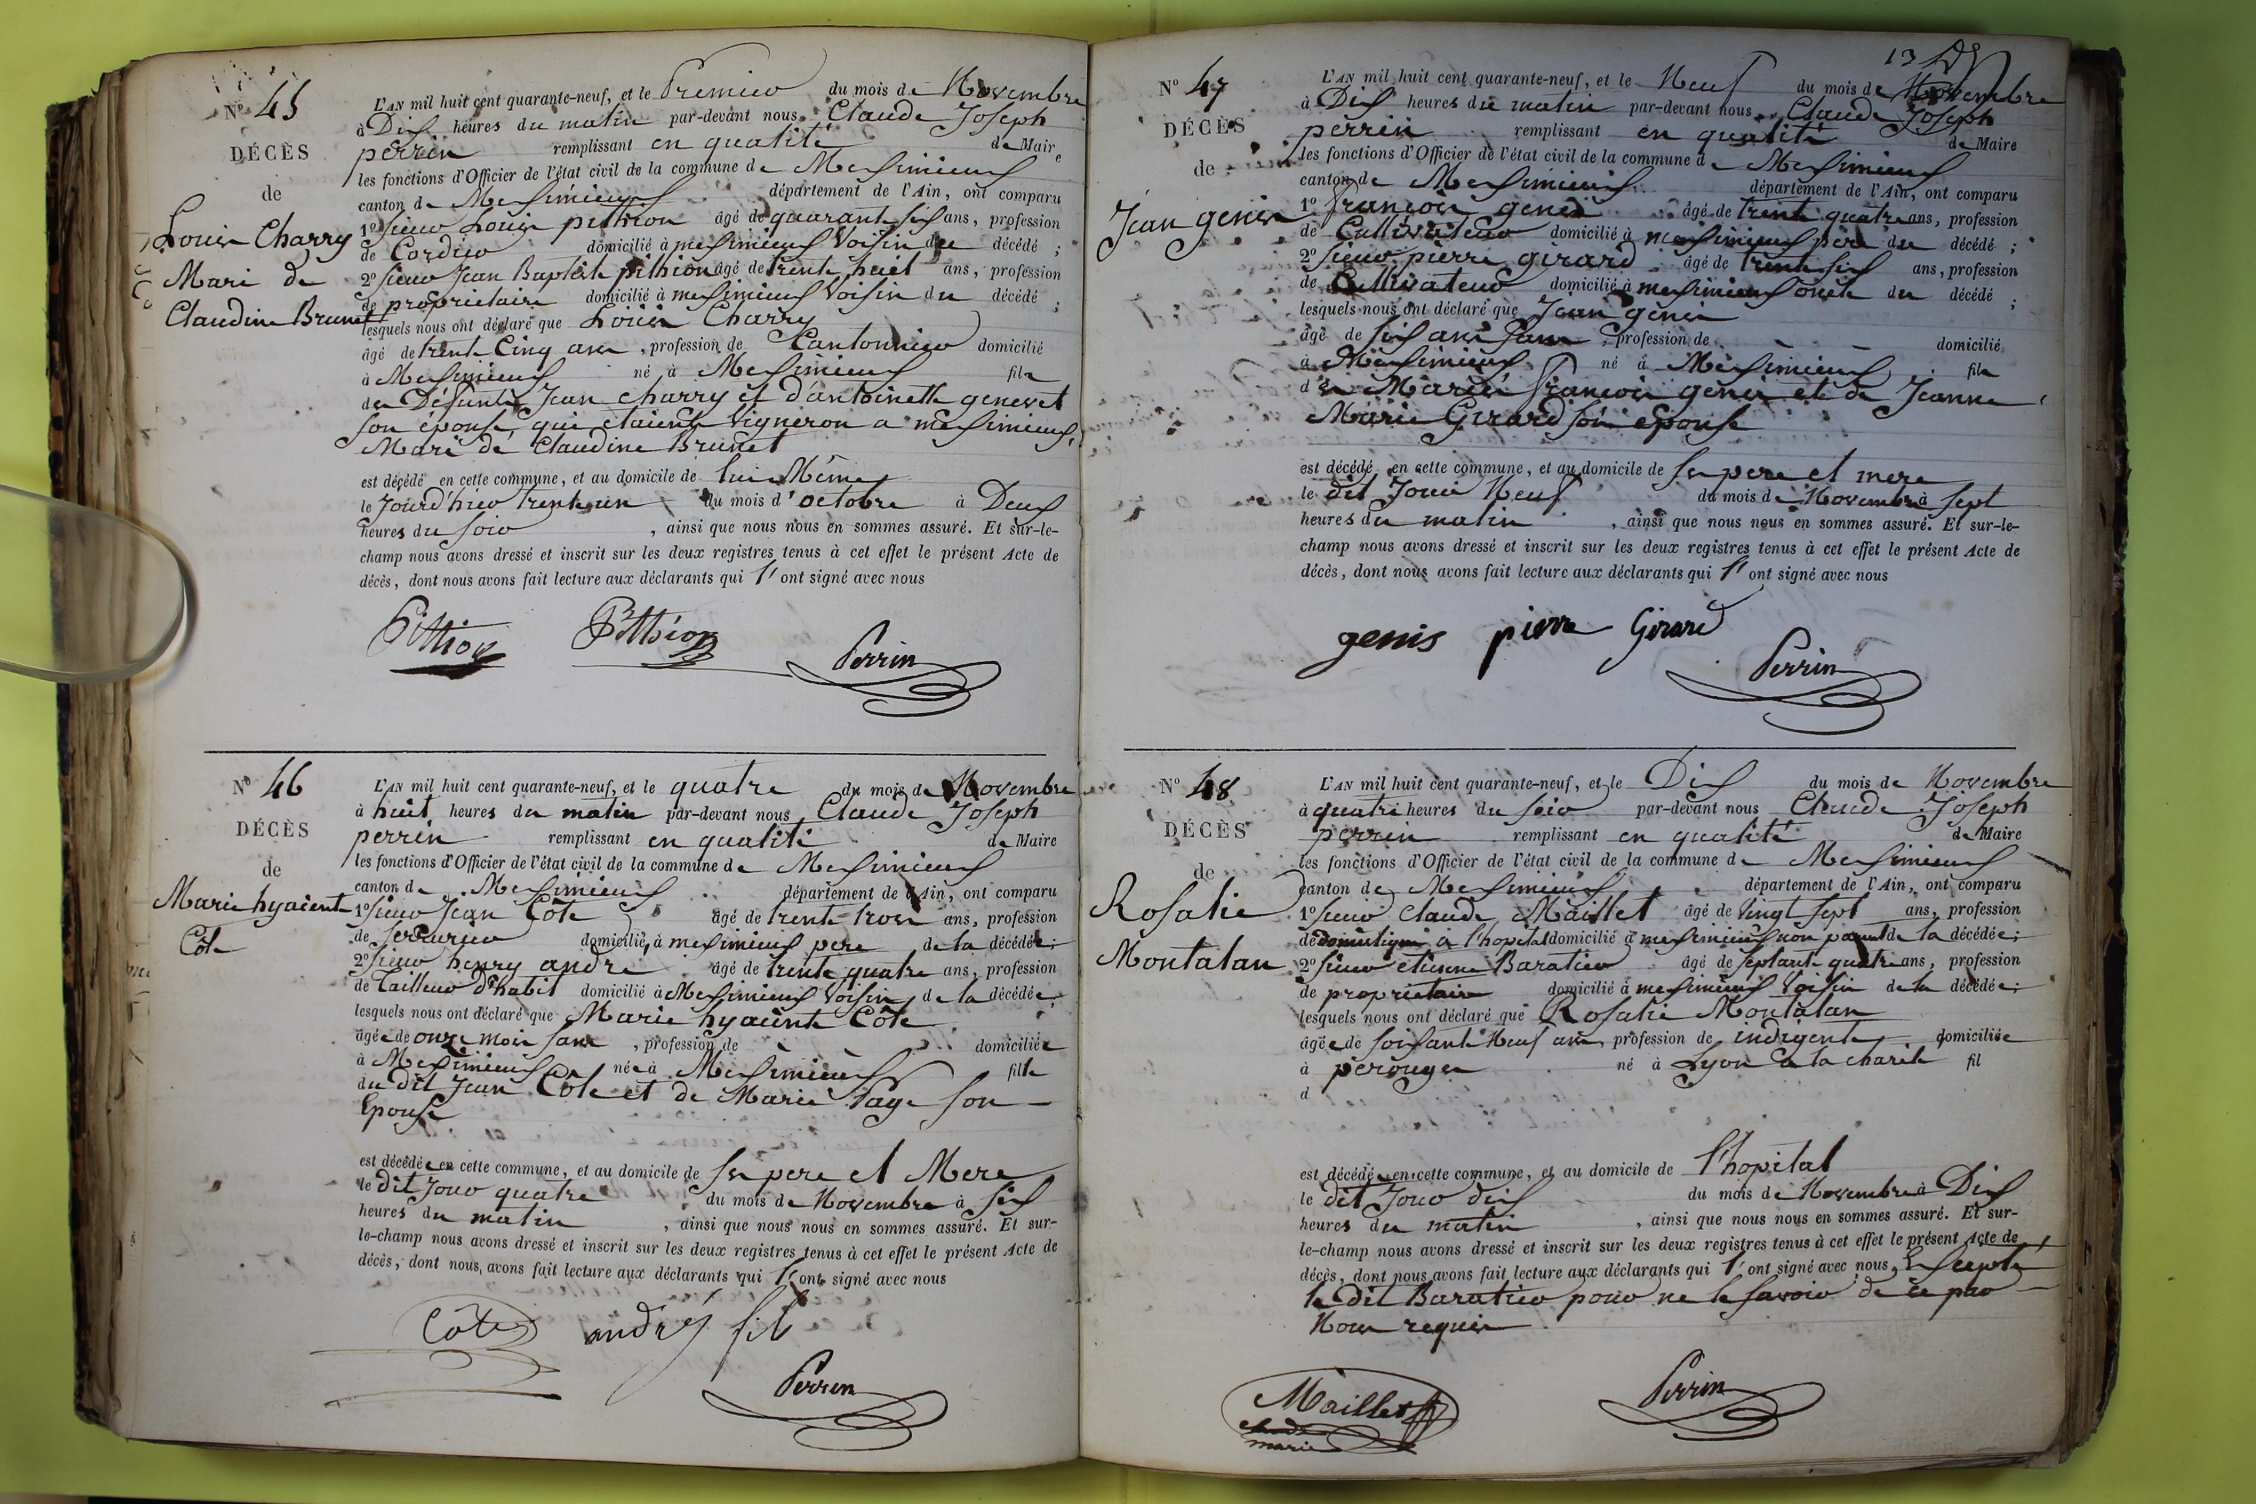 N° 45
DÉCÈS
de
Louis Charry
Mari de
Claudine Brunet
L'AN mil huit cent quarante-neuf, et le Premier du mois de Novembre
à Dix heures du matin par-devant nous Claude Joseph
perrin remplissant en qualité de Maire
les fonctions d'Officier de l'état civil de la commune de Meximieux
canton de Meximieux département de l'Ain, ont comparu
1° sieur Louis pitthion âgé de quarant six ans, profession
de Cordier domicilié à meximieux Voisin du décédé ;
2° sieur Jean Baptiste pitthion âgé de trente huit ans, profession
de proprietaire domicilié à meximieux Voisin du décédé ;
lesquels nous ont déclaré que Louis Charry
âgé de trente Cinq ans , profession de Cantonnier domicilié
à Meximieux né à Meximieux fils
de Défunts Jean charry et d'antoinette genevet
son épouse qui étaient Vigneron a meximieux,
Mari de Claudine Brunet
est décédé en cette commune, et au domicile de lui Même
le Jourd'hier trente un du mois d'octobre à Deux
heures du soir , ainsi que nous nous en sommes assuré. Et sur-le-
champ nous avons dressé et inscrit sur les deux registres tenus à cet effet le présent Acte de
décès, dont nous avons fait lecture aux déclarants qui l'ont signé avec nous
Pitthion Pitthion Perrin
N° 46
DÉCÈS
de
Marie hyacinte
Côte
L'AN mil huit cent quarante-neuf, et le quatre du mois de Novembre
à huit heures du matin par-devant nous Claude Joseph
perrin remplissant en qualité de Maire
les fonctions d'Officier de l'état civil de la commune de Meximieux
canton de Meximieux département de l'Ain, ont comparu
1° sieur Jean Côte âgé de trente trois ans, profession
de serrurier domicilié à meximieux pere de la décédée;
2° sieur henry andré âgé de trente quatre ans, profession
de Tailleur d'habit domicilié à Meximieux Voisin de la décédée;
lesquels nous ont déclaré que Marie hyacinte Côte
âgée de onze mois sans , profession de domiciliée
à Meximieux née à Meximieux fille
du dit Jean Côte et de Marie Page son
Epouse
est décédée en cette commune, et au domicile de ses pere et Mere
le dit Jour quatre du mois de Novembre à six
heures du matin , ainsi que nous nous en sommes assuré. Et sur-
le-champ nous avons dressé et inscrit sur les deux registres tenus à cet effet le présent Acte de
décès, dont nous avons fait lecture aux déclarants qui l'ont signé avec nous
Côte andré fils
Perrin
13
N° 47
DÉCÈS
de
Jean genis
L'AN mil huit cent quarante-neuf, et le Neuf du mois de Novembre
à Dix heures du matin par-devant nous Claude Joseph
perrin remplissant en qualité de Maire
les fonctions d'Officier de l'état civil de la commune de Meximieux
canton de Meximieux département de l'Ain, ont comparu
1° françois genis âgé de trente quatre ans, profession
de Cultivateur domicilié à meximieux père du décédé ;
2° sieur pierre girard âgé de trente six ans, profession
de Cultivateur domicilié à meximieux oncle du décédé ;
lesquels nous ont déclaré que Jean genis
âgé de six ans sans , profession de domicilié
à Meximieux né à Meximieux fils
de Mariés françois genis et de Jeanne
Marie Girard son épouse
est décédé en cette commune, et au domicile de ses pere et mere
le dit Jour Neuf du mois de Novembre à sept
heures du matin , ainsi que nous nous en sommes assuré. Et sur-le-
champ nous avons dressé et inscrit sur les deux registres tenus à cet effet le présent Acte de
décès, dont nous avons fait lecture aux déclarants qui l'ont signé avec nous
genis pierre Girard
Perrin
N° 48
DÉCÈS
de
Rosalie
Montalan
L'AN mil huit cent quarante-neuf, et le Dix du mois de Novembre
à quatre heures du soir par-devant nous Claude Joseph
perrin remplissant en qualité de Maire
les fonctions d'Officier de l'état civil de la commune de Meximieux
canton de Meximieux département de l'Ain, ont comparu
1° sieur Claude Maillet âgé de Vingt sept ans, profession
de domestique à l'hopital domicilié à meximieux non parent de la décédée;
2° sieur etienne Baratier âgé de septante quatre ans, profession
de proprietaire domicilié à meximieux Voisin de la décédée;
lesquels nous ont déclaré que Rosalie Montalan
âgée de soixante Neuf ans, profession de indigente domiciliée
à pérouges né à Lyon à la charité fil
d
est décédée en cette commune, et au domicile de l'hopital
le dit Jour dix du mois de Novembre à Dix
heures du matin , ainsi que nous nous en sommes assuré. Et sur-
le-champ nous avons dressé et inscrit sur les deux registres tenus à cet effet le présent Acte de
décès, dont nous avons fait lecture aux déclarants qui l'ont signé avec nous, Excepté
le dit Baratier pour ne le savoir de ce par
Nous requis
Maillet Perrin
marie